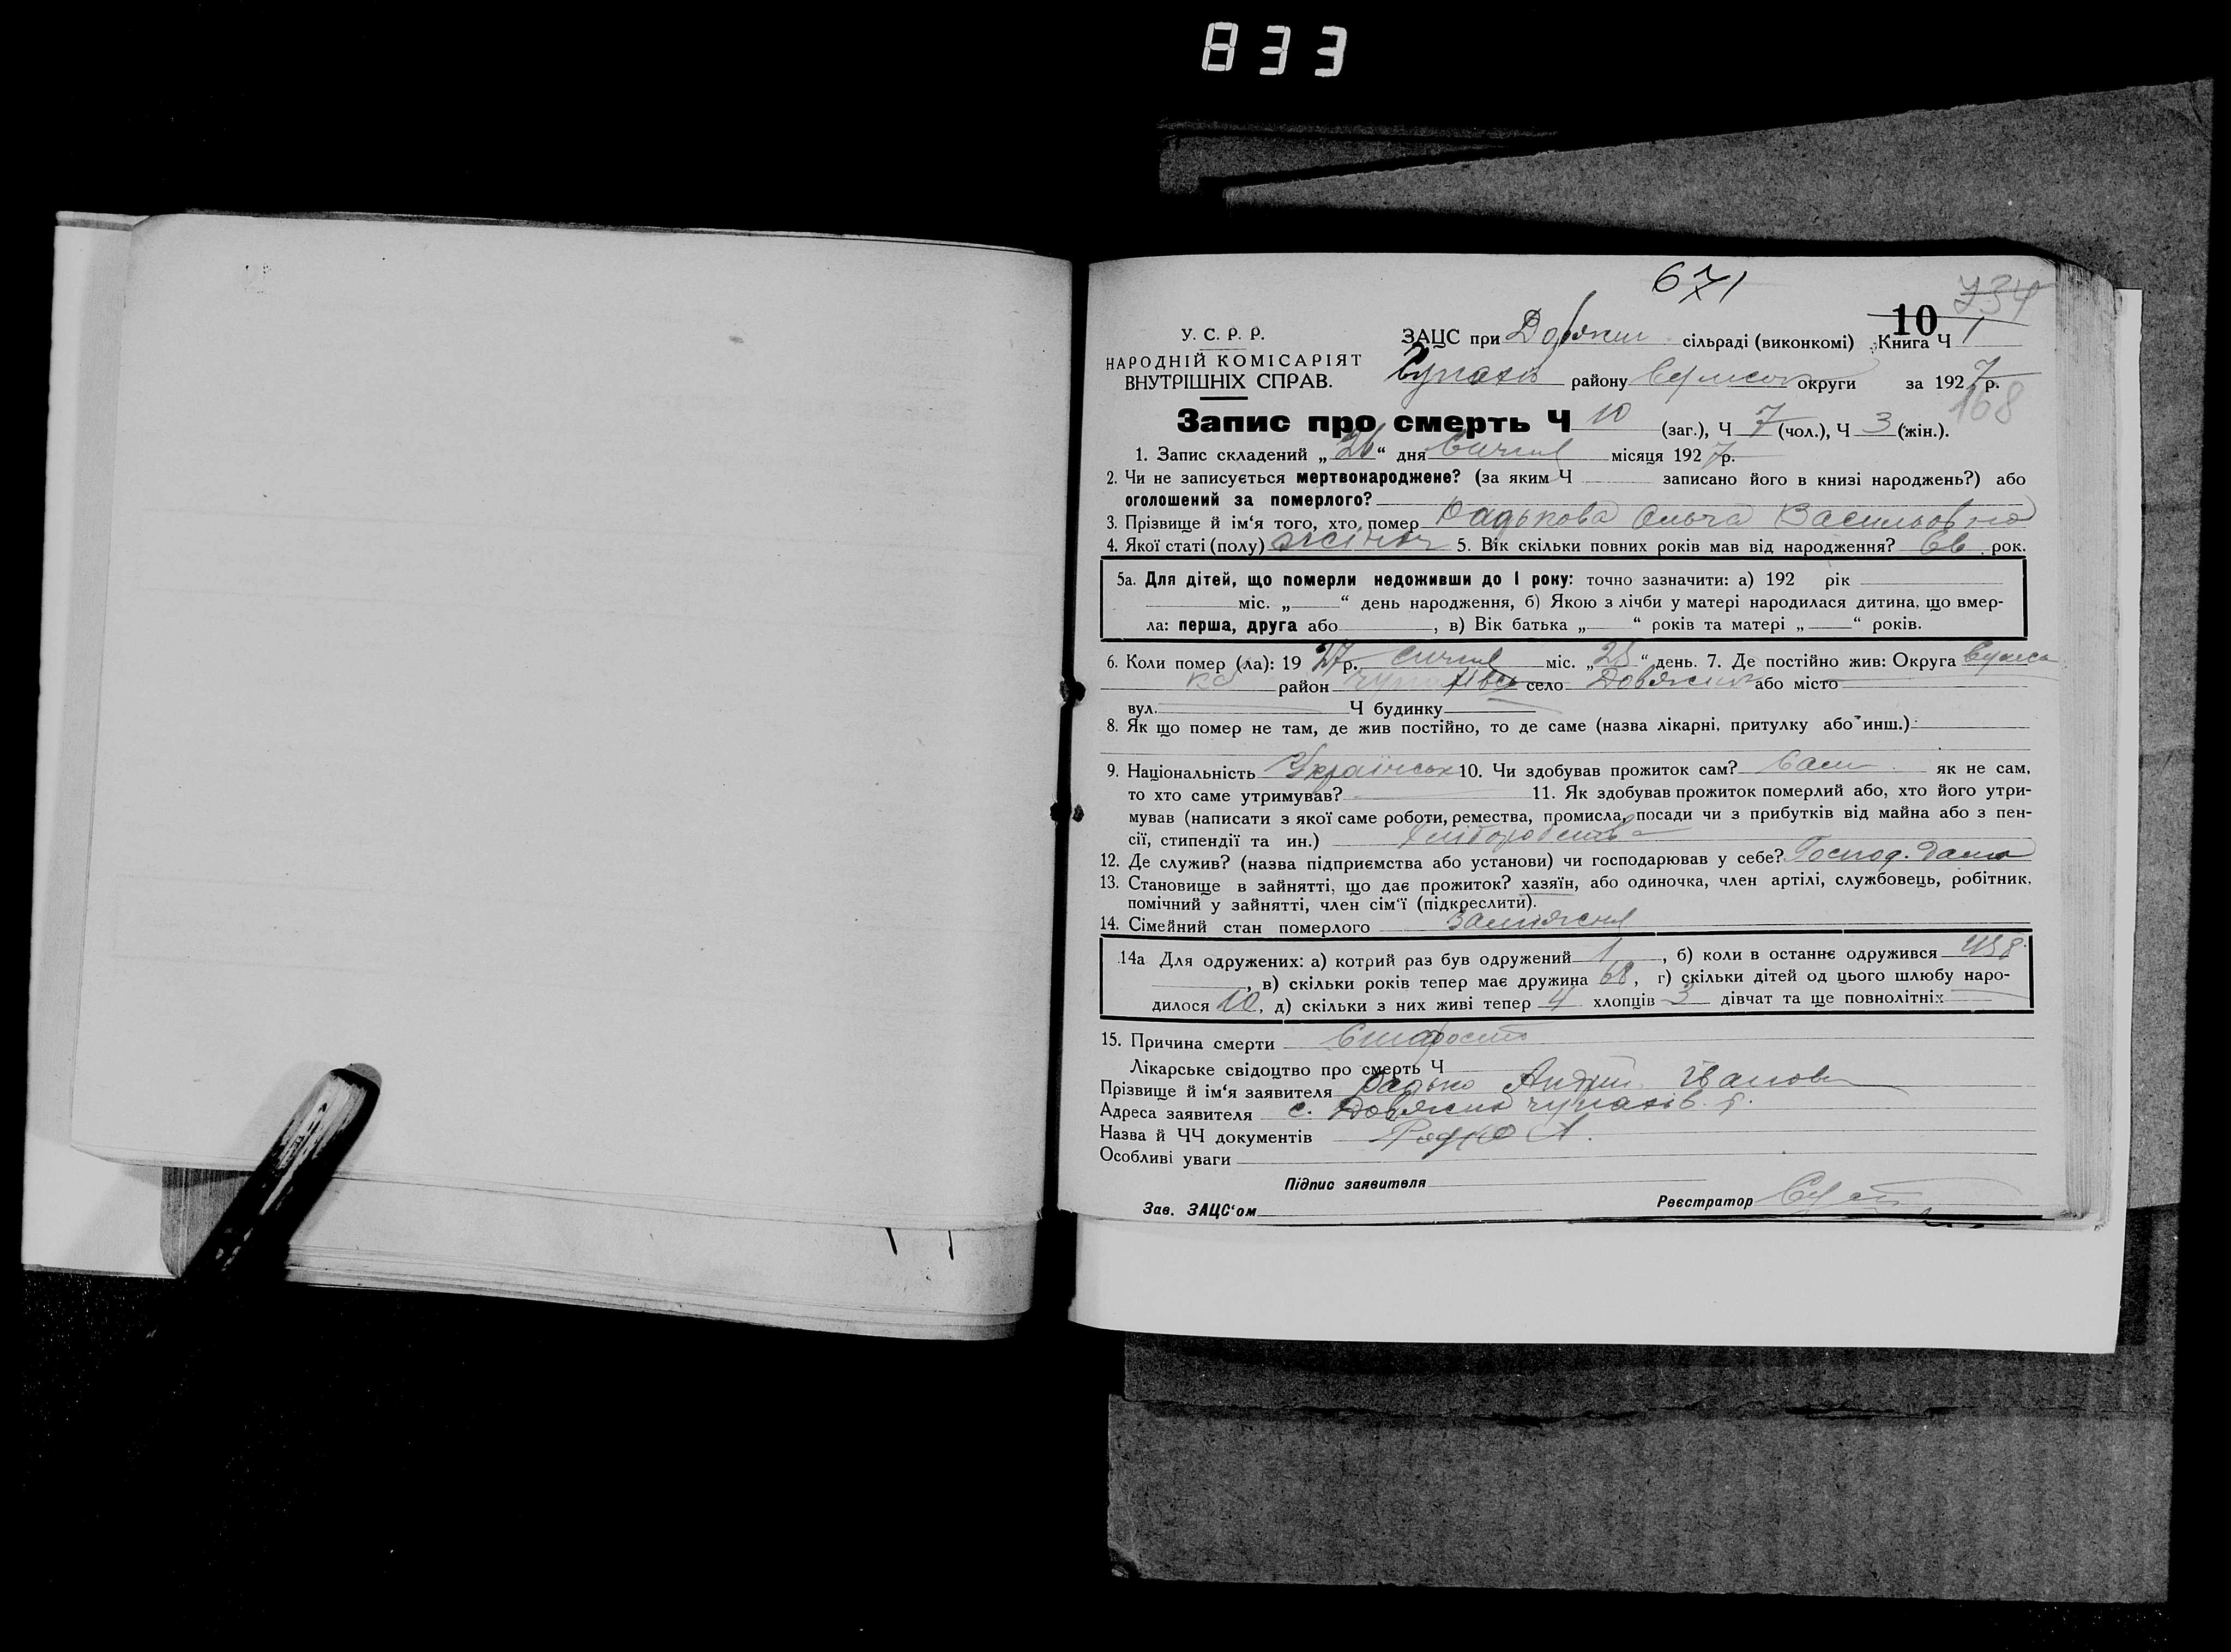 833
671
734
10
У. С. Р. Р.
НАРОДНІЙ КОМІСАРІЯТ
ВНУТРІШНІХ СПРАВ.
ЗАЦС при Довжик сільраді (виконкомі) Книга Ч 1
Чупахів району Сумськ округи за 1927 р.
168
Запис про смерть Ч 10 (заг.), Ч 7 (чол.), Ч 3 (жін.).
1. Запис складений „26“ дня Січня місяця 1927 р.
2. Чи не записується мертвонароджене? (за яким Ч записано його в книзі народжень?) або
оголошений за померлого?
3. Прізвище й ім‘я того, хто помер Радькова Васильовна
4. Якої статі (полу) жіноч 5. Вік скільки повних років мав від народження? 66 рок.
5а. Для дітей, що померли недоживши до 1 року: точно зазначити: а) 192 рік
міс. „ “ день народження, б) Якою з лічби у матері народилася дитина, що вмер-
ла: перша, друга або , в) Вік батька „ “ років та матері „ “ років.
6. Коли помер (ла): 1927 р. січня міс. „25“ день. 7. Де постійно жив: Округа Сумсь
ка район Чупахівсь село Довжик або місто
вул. Ч будинку
8. Як що помер не там, де жив постійно, то де саме (назва лікарні, притулку або инш.)
9. Національність Українськ 10. Чи здобував прожиток сам? Сам як не сам,
то хто саме утримував? 11. Як здобував прожиток померлий або, хто його утри-
мував (написати з якої саме роботи, ремества, промисла, посади чи з прибутків від майна або з пен-
сії, стипендії та ин.) Хліборобства
12. Де служив? (назва підприємства або установи) чи господарював у себе? Господ. дома
13. Становище в зайнятті, що дає прожиток? хазяїн, або одиночка, член артілі, службовець, робітник,
помічний у зайнятті, член сім‘ї (підкреслити).
14. Сімейний стан померлого Заміжня
14а Для одружених: а) котрий раз був одружений 1, б) коли в останнє одружився
, в) скільки років тепер має дружина 68, г) скільки дітей од цього шлюбу наро-
дилося 10, д) скільки з них живі тепер 4 хлопців 3 дівчат та ще повнолітніх
15. Причина смерти Старость
Лікарське свідоцтво про смерть Ч
Прізвище й ім‘я заявителя Радько Андрій Іванов
Адреса заявителя с. Довжик Чупахів. р.
Назва й ЧЧ документів Радко А.
Особливі уваги
Підпис заявителя
Зав. ЗАЦС‘ом Реєстратор